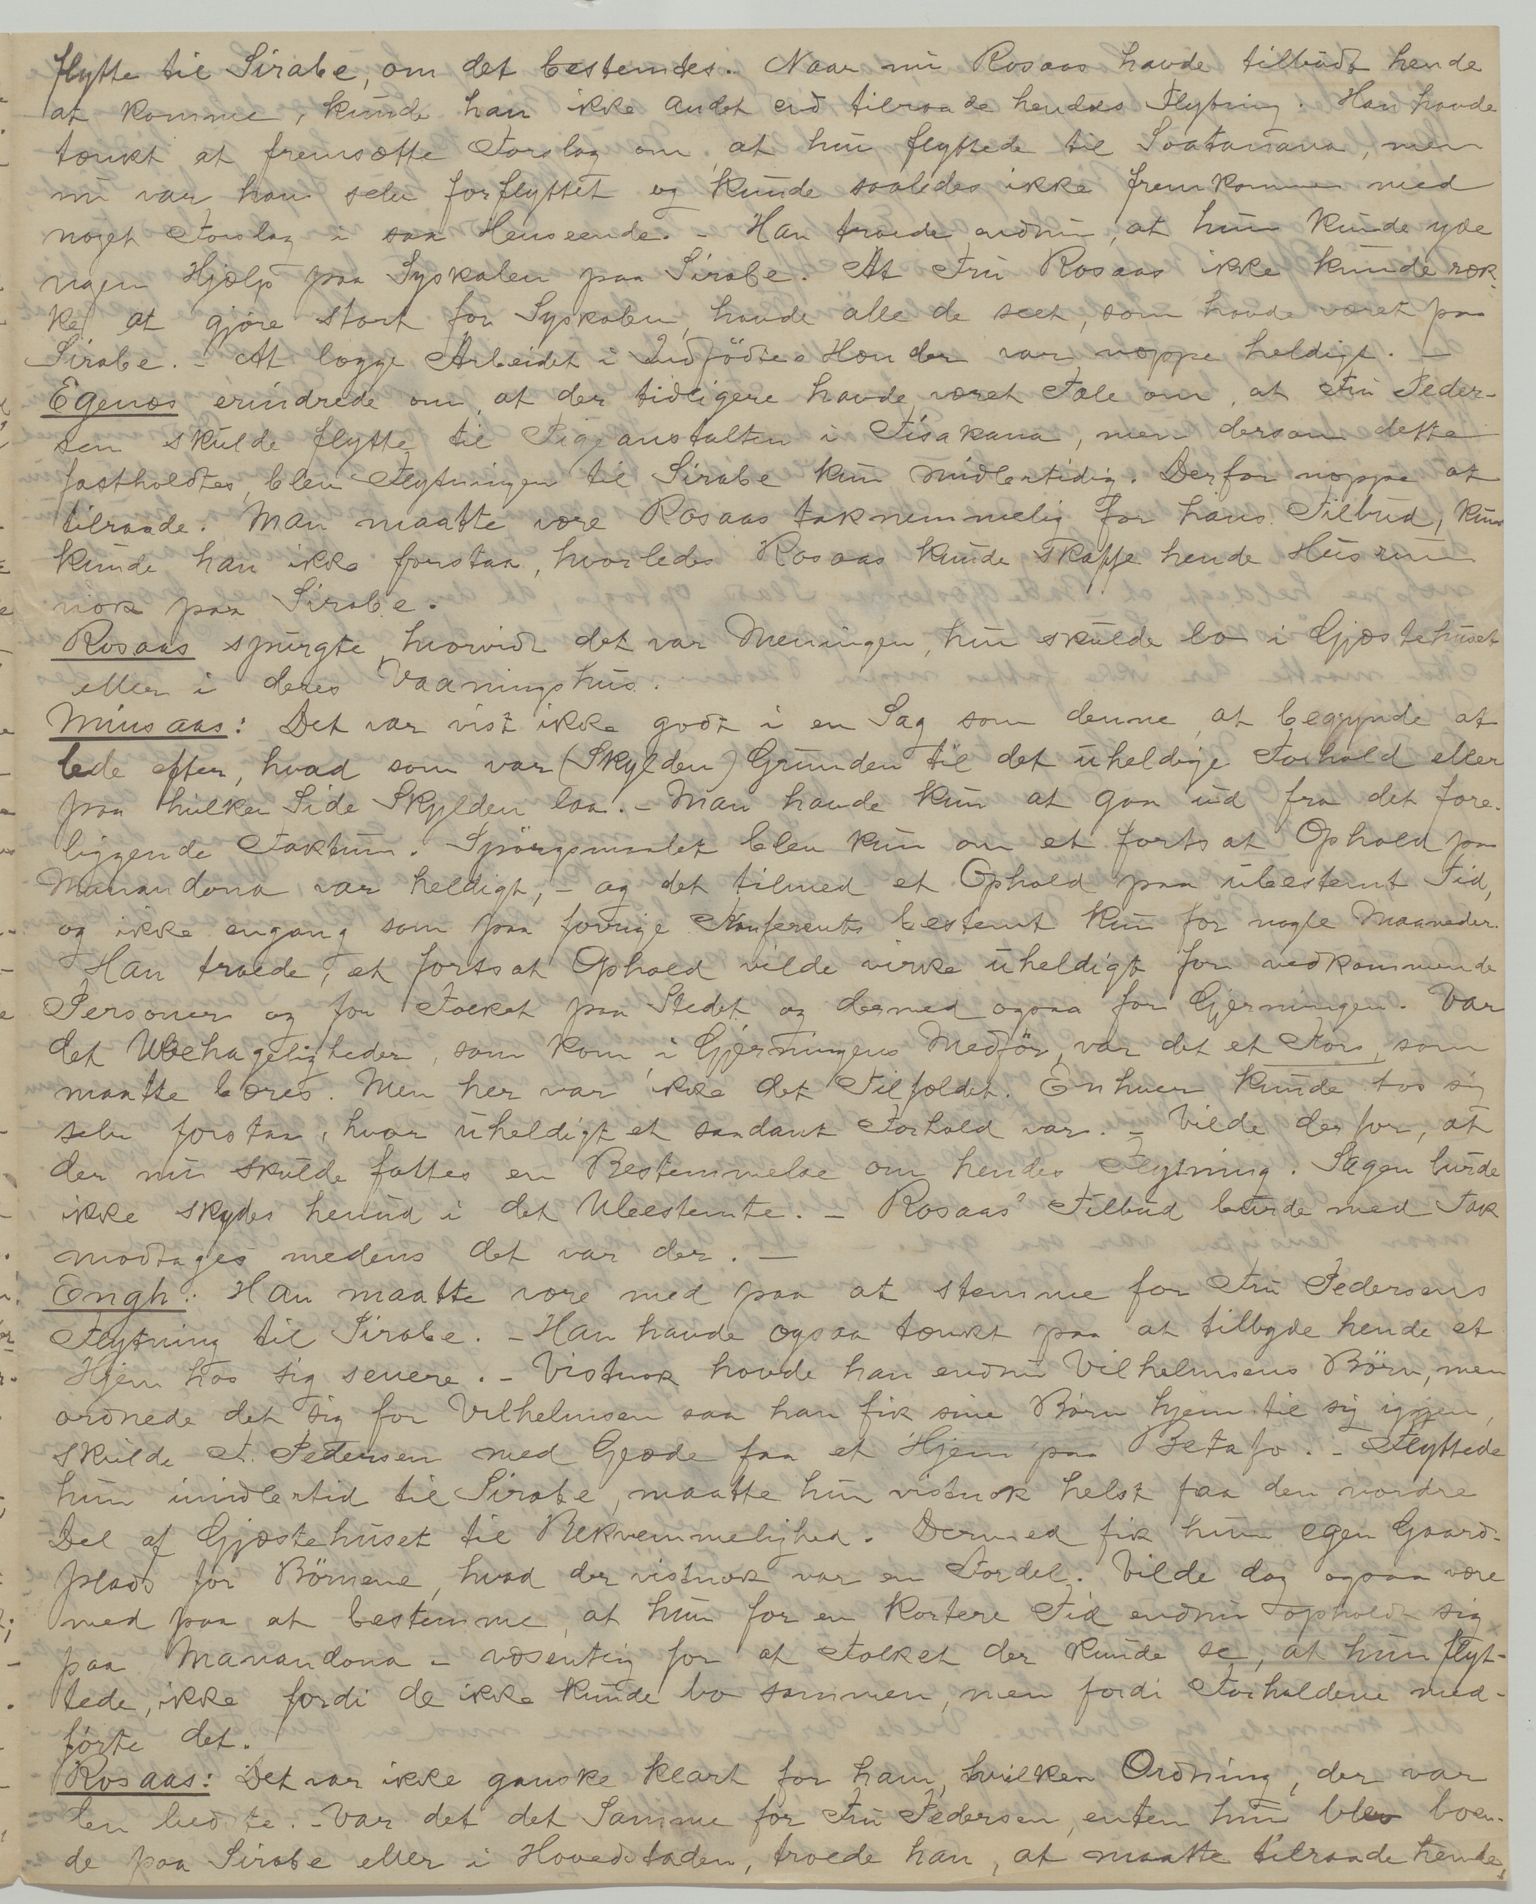 flytte til Sirabe, om det bestemdes. Naar nu Rosaas havde tilbudt hende
at komme, kunde han ikke andet end tilraade hendes Flytning. Han havde
tænkt at fremsætte Forslag om, at hun flyttede til Soatanana, men
nu var han selv forflyttet og kunde saaledes ikke fremkomme med
noget Forslag i saa Henseende. - Han troede endnu, at hun kunde yde
nogen Hjælp paa Syskolen paa Sirabe. At Fru Rosaas ikke kunde ræk-
ke at gjøre stort for Syskolen, havde alle de seet, som havde været paa
Sirabe. - At lægge Arbeidet i Indfödtes Hænder var neppe heldigt. -
Egenæs erindrede om, at der tidligere havde været Tale om, at Fru Peder-
sen skulde flytte til Pigeanstalten i Fisakana, men dersom dette
fastholdtes, blev Flytningen til Sirabe kun midlertidig. Derfor neppe at
tilraade. Man maatte være Rosaas taknemmelig for hans Tilbud, kun
kunde han ikke forstaa, hvorledes Rosaas kunde skaffe hende Husrum
nok paa Sirabe.
Rosaas spurgte, hvorvidt det var Meningen, hun skulde bo i Gjæstehuset
eller i deres Vaaningshus.
Minsaas: Det var vist ikke godt i en Sag som denne at begynde at
lede efter, hvad som var (Skylden) Grunden til det uheldige Forhold eller
paa hvilken Side Skylden laa. - Man havde kun at gaa ud fra det fore-
liggende Faktum. Spörgsmaalet blev kun om et fortsat Ophold paa
Manandona var heldigt, - og det tilmed et Ophold paa ubestemt Tid,
og ikke engang som paa forrige Konferents bestemt kun for nogle Maaneder.
Han troede, et fortsat Ophold vilde virke uheldigt for vedkommende
Personer og for Folket paa Stedet og dermed ogsaa for Gjerningen. Var
det Ubehageligheder, som kom i Gjerningens Medför, var det et Kors, som
maatte bæres. Men her var ikke det Tilfældet. Enhver kunde hos sig
selv forstaa, hvor uheldigt et saadant Forhold var. - Vilde derfor, at
der nu skulde fattes en Bestemmelse om hendes Flytning. Sagen burde
ikke skydes henud i det Ubestemte. - Rosaas' Tilbud burde med Tak
modtages medens det var der. -
Engh: Han maatte være med paa at stemme for Fru Pedersens
Flytning til Sirabe. - Han havde ogsaa tænkt paa at tilbyde hende et
Hjem hos sig senere. - Vistnok havde han endnu Vilhelmsens Börn, men
ordnede det sig for Vilhelmsen saa han fik sine Börn hjem til sig igjen,
skulde F. Pedersen med Glæde faa et Hjem paa Betafo. - Flyttede
hun imidlertid til Sirabe, maatte hun vistnok helst faa den nordre
Del af Gjæstehuset til Bekvemmelighed. Dermed fik hun egen Gaards-
plads for Börnene, hvad der vistnok var en Fordel. Vilde dog ogsaa være
med paa at bestemme, at hun for en kortere Tid endnu opholdt sig
paa Manandona - væsentlig for at Folket der kunde se, at hun flyt-
tede, ikke fordi de ikke kunde bo sammen, men fordi Forholdene med-
förte det.
Rosaas: Det var ikke ganske klart for ham, hvilken Ordning, der var
den bedste. - Var det det Samme for Fru Pedersen, enten hun blev boen-
de paa Sirabe eller i Hovedstaden, troede han, at maatte tilraade hende,